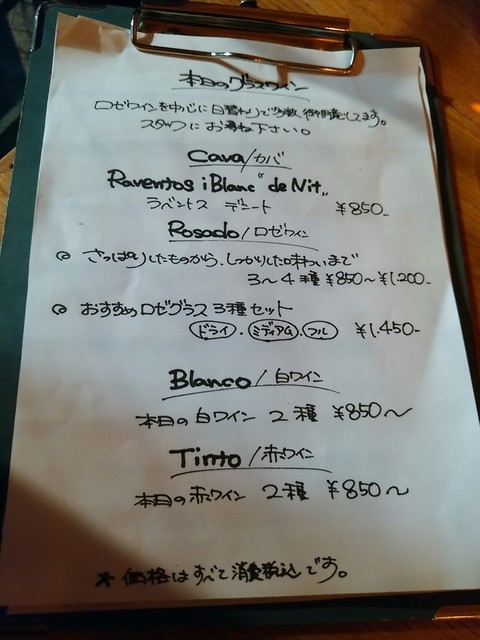 本日のグラスワイン
ロゼワインを中心に日替わりで多数御用意してます。
スタッフにお尋ね下さい。
Cava/カバ
Raventos i Blanc "de Nit"
ラベントス デニート ¥850-
Rosado/ロゼワイン
さっぱりしたものから、しっかりした味わいまで
3〜4種 ¥850〜¥1,200-
おすすめロゼグラス3種セット
ドライ・ミディアム・フル ¥1,450-
Blanco/白ワイン
本日の白ワイン 2種 ¥850〜
Tinto/赤ワイン
本日の赤ワイン 2種 ¥850〜
*価格はすべて消費税込です。